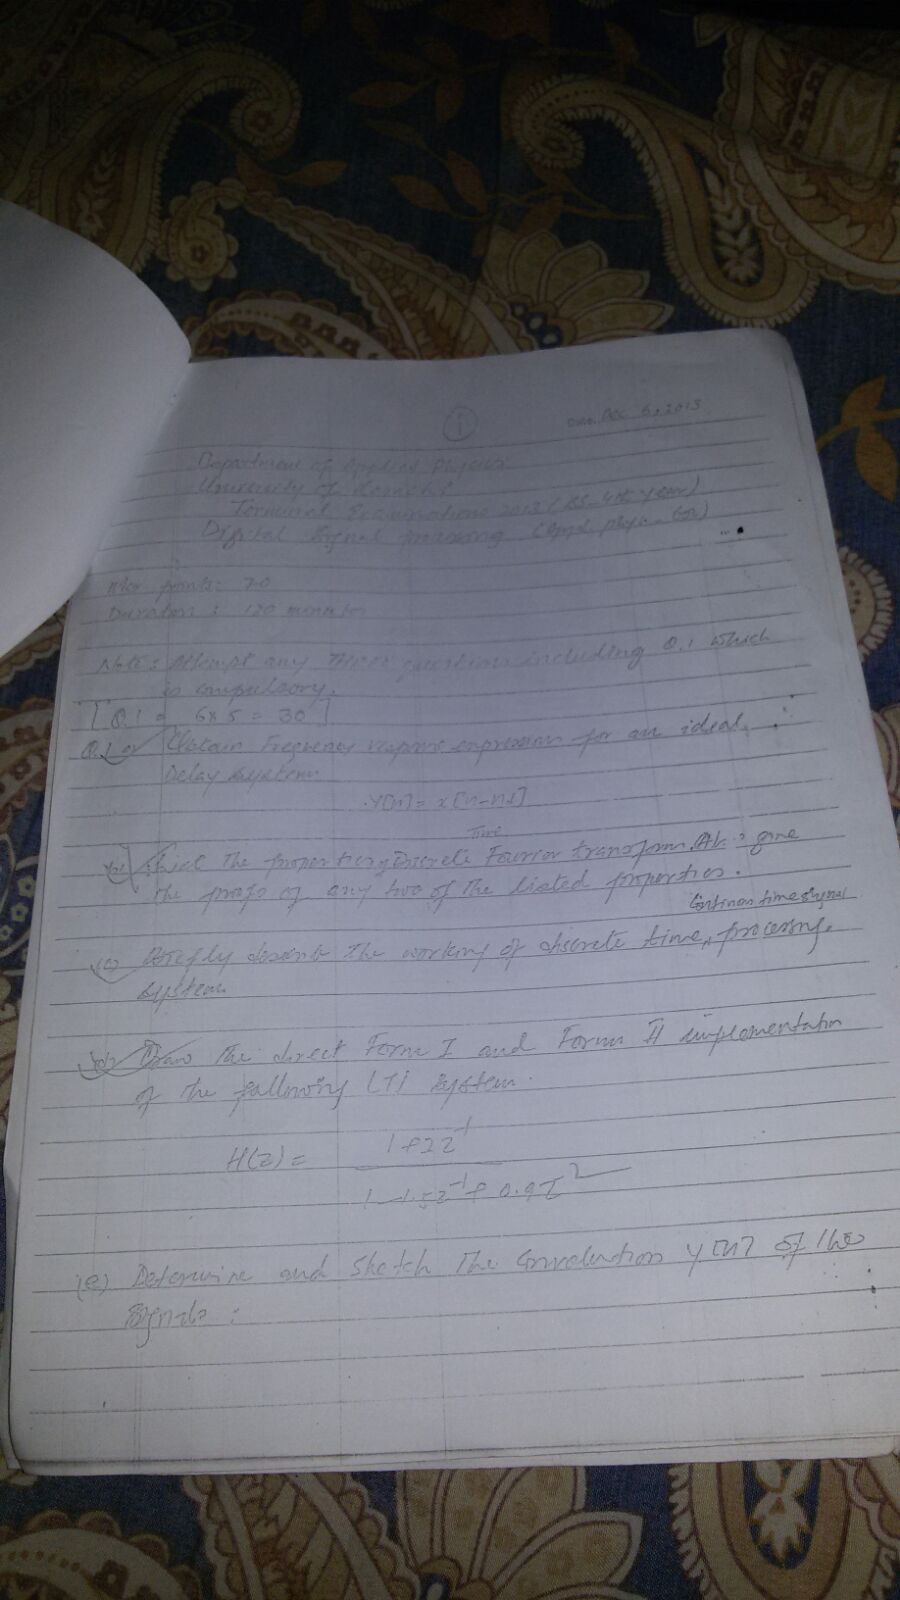 1
Date. Dec 5, 2013
Department of Applied Physics
University of Karachi
Terminal Examinations 2013 (BS-4th year)
Digital Signal processing (Appl. phys-
Max points: 70
Duration : 120 minutes
Note: Attempt any Three questions including Q.1 which
is compulsory.
[Q.1 = 6x5 = 30]
Q.1 a) Obtain Frequency respons expression for an ideal
Delay system
Y[n] = x[n-nd]
Time
List The properties of Discrete Fourier transform. Also give
the proofs of any two of the listed properties.
Continous time signal
(c) Briefly describe the working of discrete time processing
system
(d) Draw The direct Form I and Form II implementation
of the following LTI system.
H(z) = 1+2z^-1
1-1.5z^-1+0.9z^-2
(e) Determine and sketch The Convolution y[n] of two
signals :